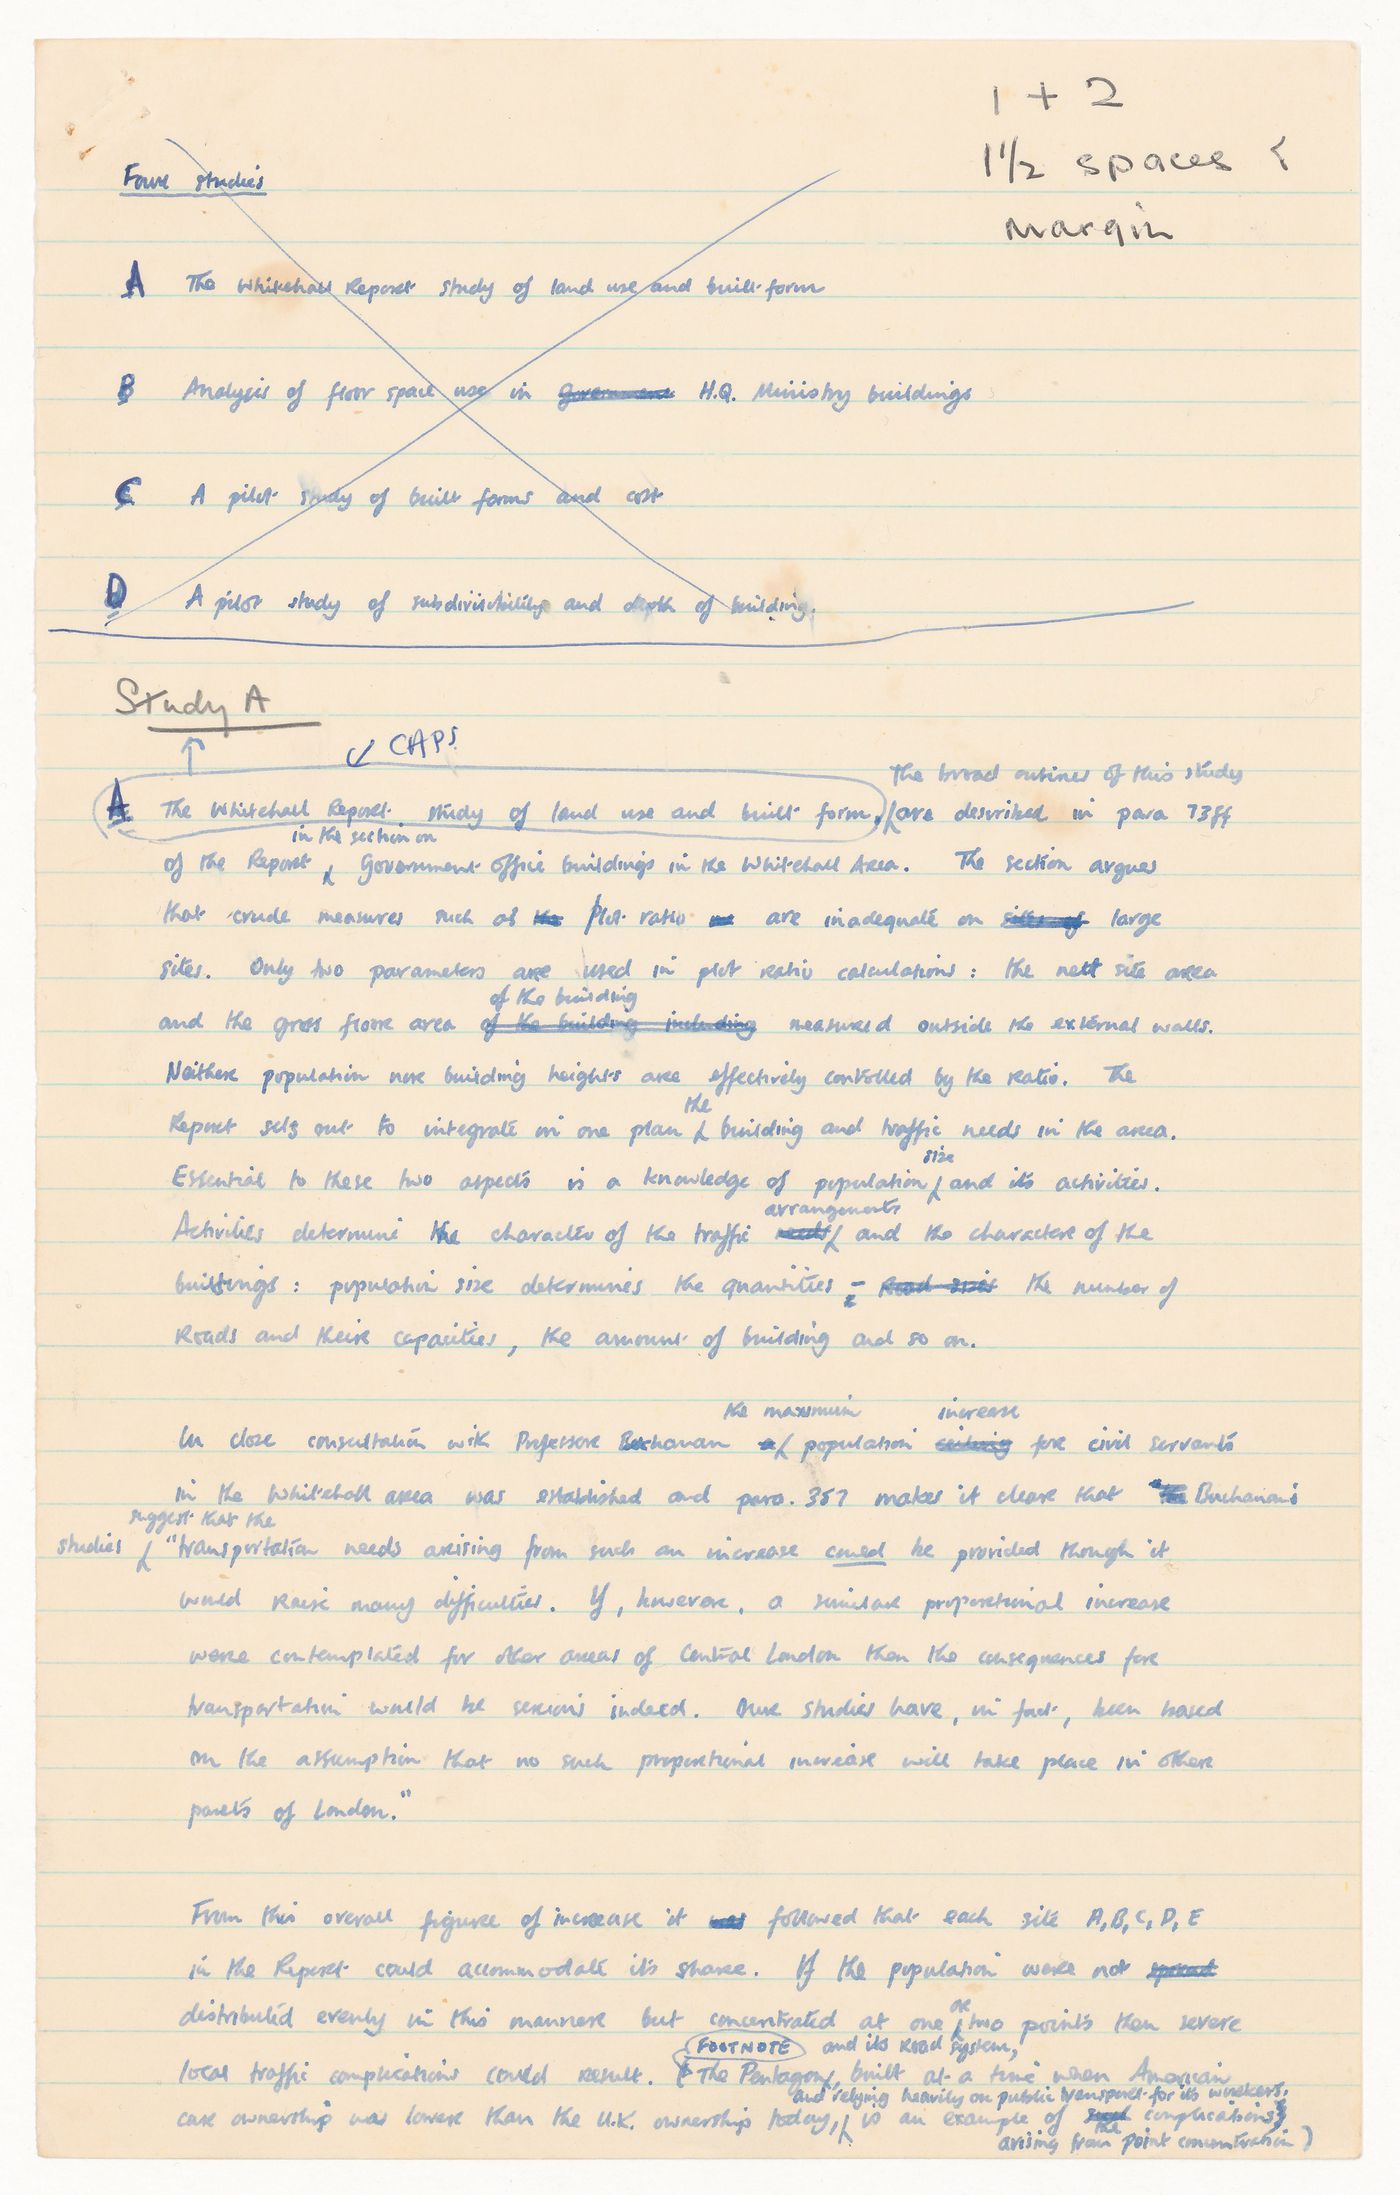 1 + 2
1 1/2 spaces &
margin
Four studies
A The Whitehall Report study of land use and built form
B Analysis of floor space use in Government H.Q. Ministry buildings
C A pilot study of built forms and cost
D A pilot study of subdivisibility and depth of building.
Study A
CAPS
The broad outlines of this study
A The Whitehall Report study of land use and built form, are described in para 73ff
in the section on
of the Report Government office buildings in the Whitehall Area. The section argues
that crude measures such as the plot ratio are inadequate on sites of large
sites. Only two parameters are used in plot ratio calculations: the nett site area
of the building
and the gross floor area of the building including measured outside the external walls.
Neither population nor building heights are effectively controlled by the ratio. The
the
Report sets out to integrate in one plan building and traffic needs in the area.
size
Essential to these two aspects is a knowledge of population and its activities.
arrangements
Activities determine the character of the traffic needs and the character of the
buildings: population size determines the quantities - Road sizes the number of
roads and their capacities, the amount of building and so on.
the maximum increase
In close consultation with Professor Buchanan a population ceiling for civil servants
in the Whitehall area was established and para. 357 makes it clear that "the Buchanan's
suggest that the
studies "transportation needs arising from such an increase could be provided though it
would raise many difficulties. If, however, a similar proportional increase
were contemplated for other areas of Central London then the consequences for
transportation would be serious indeed. Our studies have, in fact, been based
on the assumption that no such proportional increase will take place in other
parts of London."
From this overall figure of increase it was followed that each site A, B, C, D, E
in the Report could accommodate its share. If the population were not spread
or
distributed evenly in this manner but concentrated at one two points then severe
FOOTNOTE and its road system,
local traffic complications could result. (The Pentagon, built at a time when American
and relying heavily on public transport for its workers,
car ownership was lower than the U.K. ownership today, is an example of such complications
the
arising from point concentration)